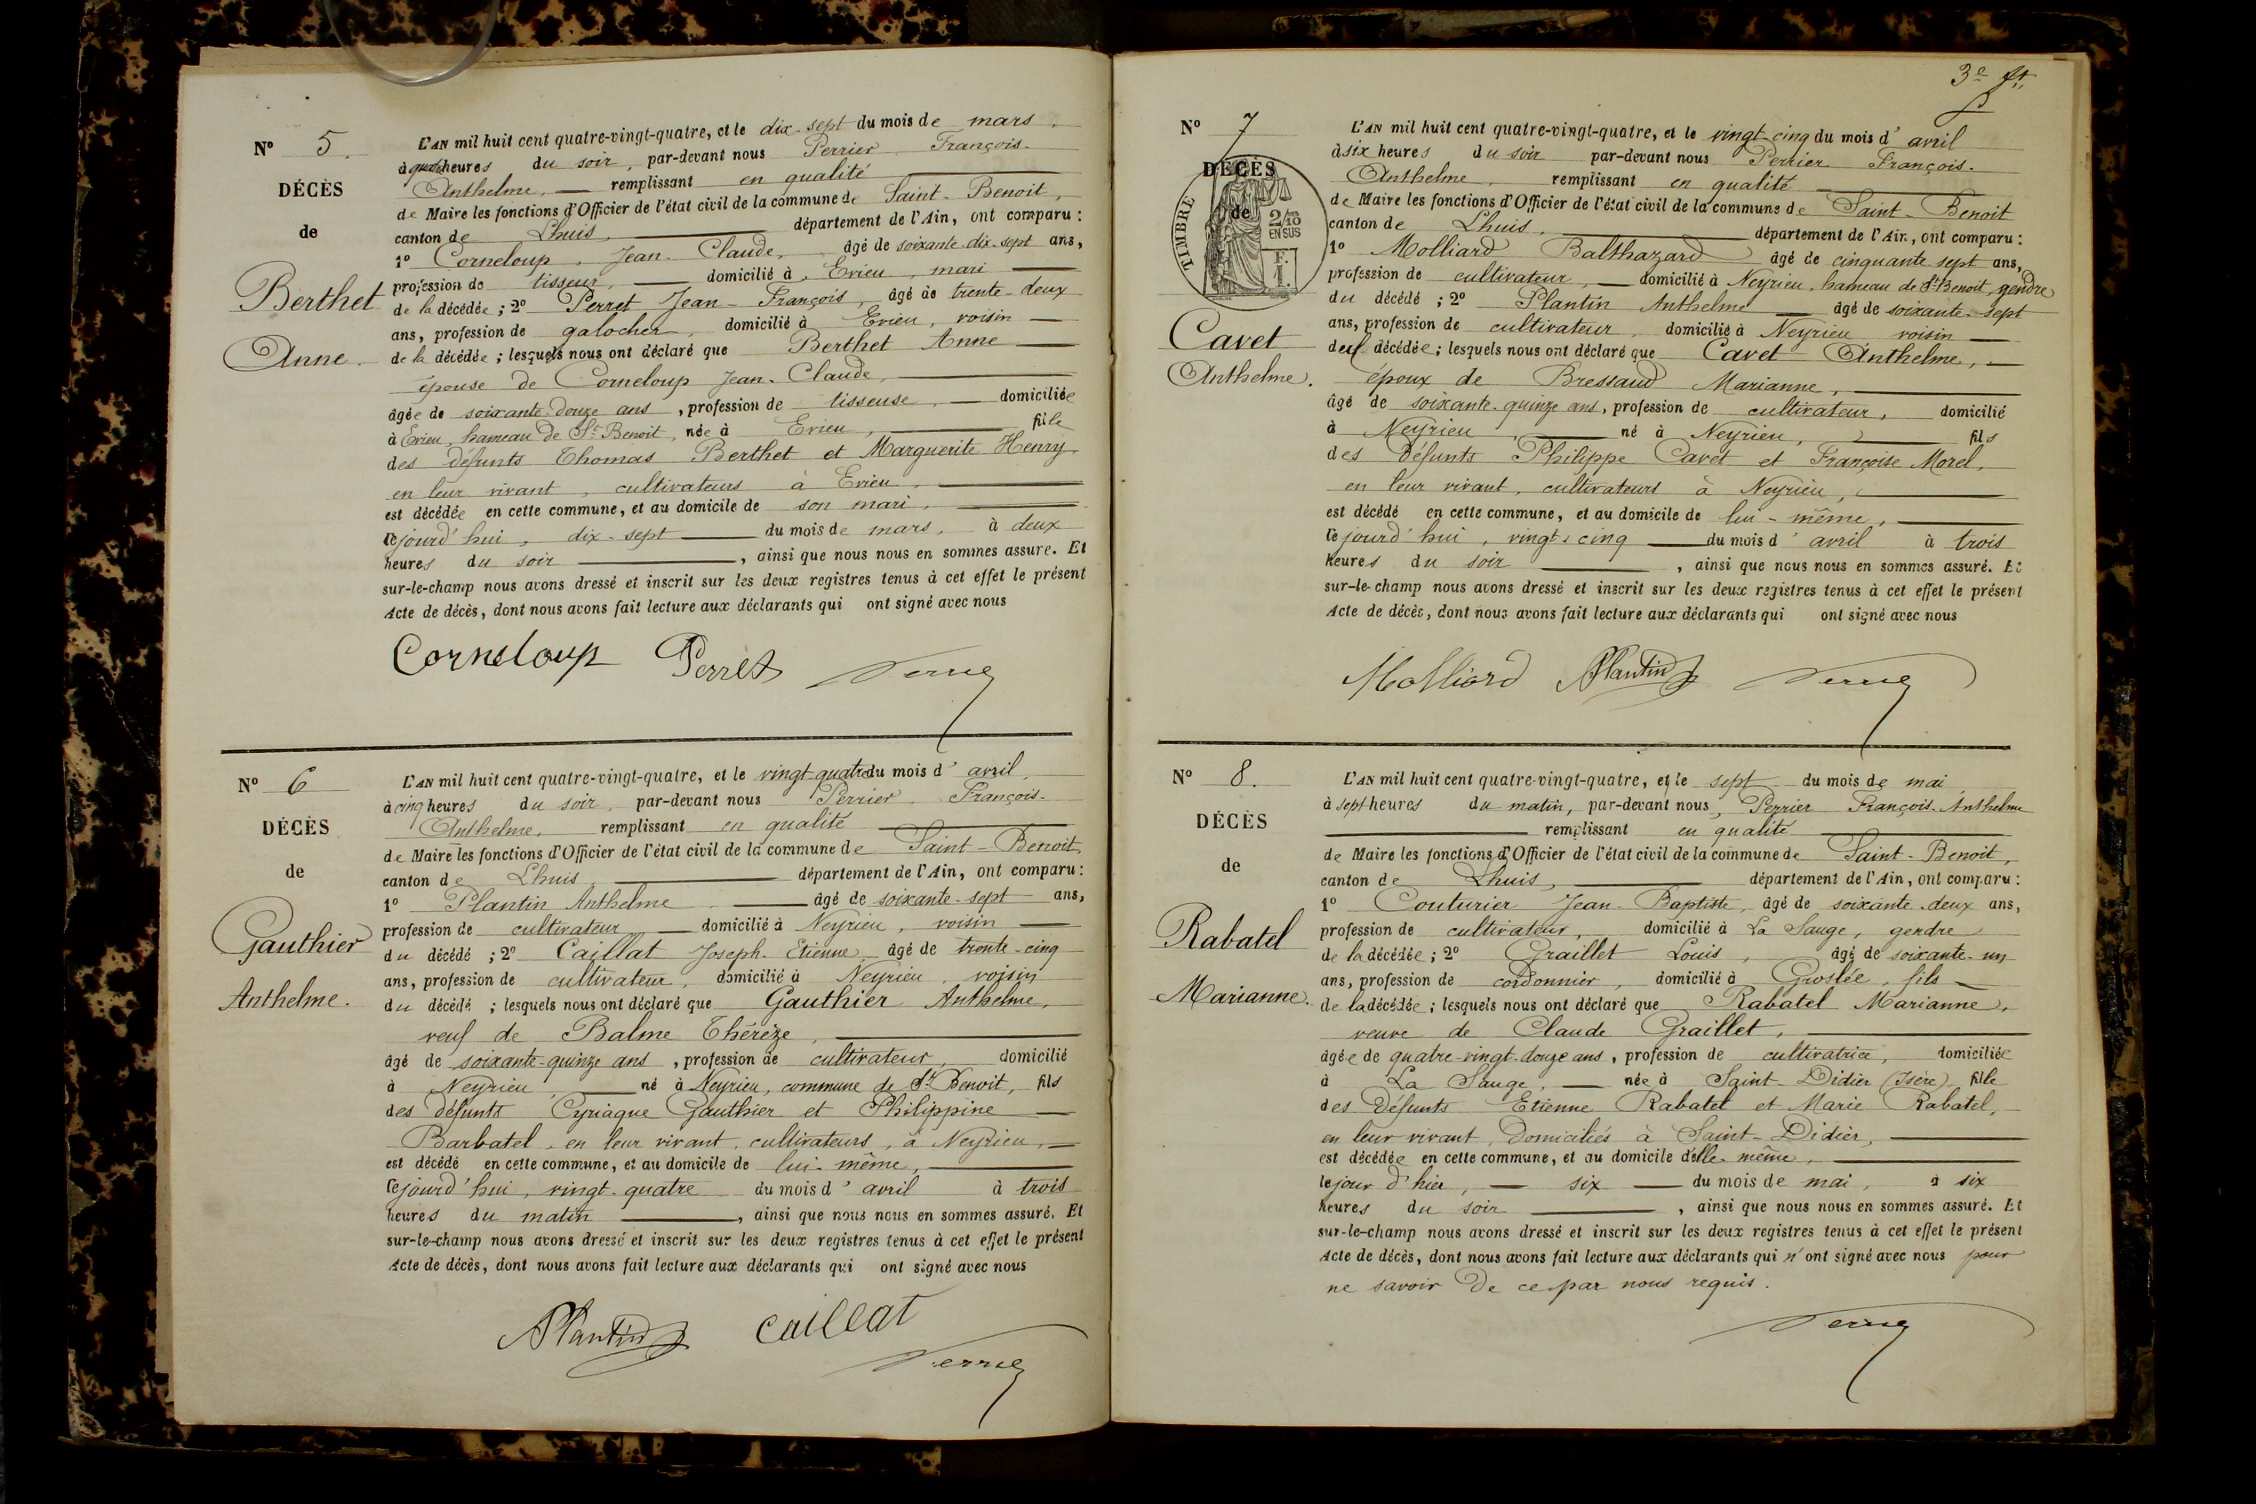 N° 5.
DÉCÈS
de
Berthet
Anne.
L'AN mil huit cent quatre-vingt-quatre, et le dix-sept du mois de mars,
à quatre heures du soir, par-devant nous Perrier François-
Anthelme, remplissant en qualité
de Maire les fonctions d'Officier de l'état civil de la commune de Saint-Benoit,
canton de Lhuis, département de l'Ain, ont comparu :
1° Corneloup, Jean-Claude, âgé de soixante-dix-sept ans,
profession de tisseur, domicilié à Evieu, mari
de la décédée ; 2° Perret Jean-François, âgé de trente-deux
ans, profession de galocher, domicilié à Evieu, voisin
de la décédée ; lesquels nous ont déclaré que Berthet Anne
épouse de Corneloup Jean-Claude,
âgée de soixante-douze ans, profession de tisseuse, domiciliée
à Evieu, hameau de St Benoit, née à Evieu, fille
des défunts Thomas Berthet et Marguerite Henry,
en leur vivant, cultivateurs à Evieu,
est décédée en cette commune, et au domicile de son mari,
cejourd'hui, dix-sept du mois de mars, à deux
heures du soir, ainsi que nous nous en sommes assuré. Et
sur-le-champ nous avons dressé et inscrit sur les deux registres tenus à cet effet le présent
Acte de décès, dont nous avons fait lecture aux déclarants qui ont signé avec nous
Corneloup Perret Perrier
N° 6
DÉCÈS
de
Gauthier
Anthelme.
L'AN mil huit cent quatre-vingt-quatre, et le vingt-quatre du mois d'avril,
à cinq heures du soir, par-devant nous Perrier François-
Anthelme, remplissant en qualité
de Maire les fonctions d'Officier de l'état civil de la commune de Saint-Benoit,
canton de Lhuis, département de l'Ain, ont comparu :
1° Plantin Anthelme âgé de soixante-sept ans,
profession de cultivateur, domicilié à Neyrieu, voisin
du décédé ; 2° Caillat Joseph-Etienne, âgé de trente-cinq
ans, profession de cultivateur, domicilié à Neyrieu, voisin
du décédé ; lesquels nous ont déclaré que Gauthier Anthelme,
veuf de Balme Thérèze,
âgé de soixante-quinze ans, profession de cultivateur, domicilié
à Neyrieu, né à Neyrieu, commune de St Benoit, fils
des défunts Cyriaque Gauthier et Philippine
Barbatel, en leur vivant, cultivateurs, à Neyrieu,
est décédé en cette commune, et au domicile de lui-même,
cejourd'hui, vingt-quatre du mois d'avril à trois
heures du matin, ainsi que nous nous en sommes assuré. Et
sur-le-champ nous avons dressé et inscrit sur les deux registres tenus à cet effet le présent
Acte de décès, dont nous avons fait lecture aux déclarants qui ont signé avec nous
APlantin Caillat
Perrier
3e ft.
N° 7
DÉCÈS
de
TIMBRE
2/10 EN SUS
Cavet
Anthelme.
L'AN mil huit cent quatre-vingt-quatre, et le vingt-cinq du mois d'avril
à six heures du soir par-devant nous Perrier François-
Anthelme, remplissant en qualité
de Maire les fonctions d'Officier de l'état civil de la commune de Saint-Benoit
canton de Lhuis, département de l'Ain, ont comparu :
1° Molliard Balthazard âgé de cinquante-sept ans,
profession de cultivateur, domicilié à Neyrieu, hameau de St Benoit, gendre
du décédé ; 2° Plantin Anthelme âgé de soixante-sept
ans, profession de cultivateur, domicilié à Neyrieu voisin
du décédé ; lesquels nous ont déclaré que Cavet Anthelme,
époux de Bressaud Marianne,
âgé de soixante-quinze ans, profession de cultivateur, domicilié
à Neyrieu, né à Neyrieu, fils
des défunts Philippe Cavet et Françoise Morel,
en leur vivant, cultivateurs à Neyrieu,
est décédé en cette commune, et au domicile de lui-même,
cejourd'hui, vingt-cinq du mois d'avril à trois
heures du soir, ainsi que nous nous en sommes assuré. Et
sur-le-champ nous avons dressé et inscrit sur les deux registres tenus à cet effet le présent
Acte de décès, dont nous avons fait lecture aux déclarants qui ont signé avec nous
Molliard APlantin Perrier
N° 8.
DÉCÈS
de
Rabatel
Marianne.
L'AN mil huit cent quatre-vingt-quatre, et le sept du mois de mai
à sept heures du matin, par-devant nous, Perrier François-Anthelme
remplissant en qualité
de Maire les fonctions d'Officier de l'état civil de la commune de Saint-Benoit,
canton de Lhuis, département de l'Ain, ont comparu :
1° Couturier Jean-Baptiste, âgé de soixante-deux ans,
profession de cultivateur, domicilié à La Sauge, gendre
de la décédée ; 2° Graillet Louis, âgé de soixante-un
ans, profession de cordonnier, domicilié à Groslée, fils
de la décédée ; lesquels nous ont déclaré que Rabatel Marianne,
veuve de Claude Graillet,
âgée de quatre-vingt-douze ans, profession de cultivatrice, domiciliée
à La Sauge, née à Saint-Didier (Isère) fille
des défunts Etienne Rabatel et Marie Rabatel,
en leur vivant, domiciliés à Saint-Didier,
est décédée en cette commune, et au domicile d'elle-même,
le jour d'hier, six du mois de mai, à six
heures du soir, ainsi que nous nous en sommes assuré. Et
sur-le-champ nous avons dressé et inscrit sur les deux registres tenus à cet effet le présent
Acte de décès, dont nous avons fait lecture aux déclarants qui n'ont signé avec nous pour
ne savoir de ce par nous requis.
Perrier